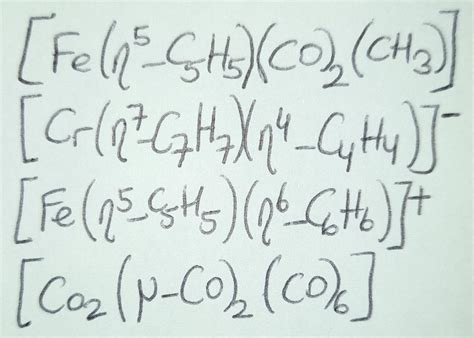 [Fe(η⁵-C₅H₅)(CO)₂(CH₃)]
[Cr(η⁷-C₇H₇)(η⁴-C₄H₄)]⁻
[Fe(η⁵-C₅H₅)(η⁶-C₆H₆)]⁺
[Co₂(μ-CO)₂(CO)₆]